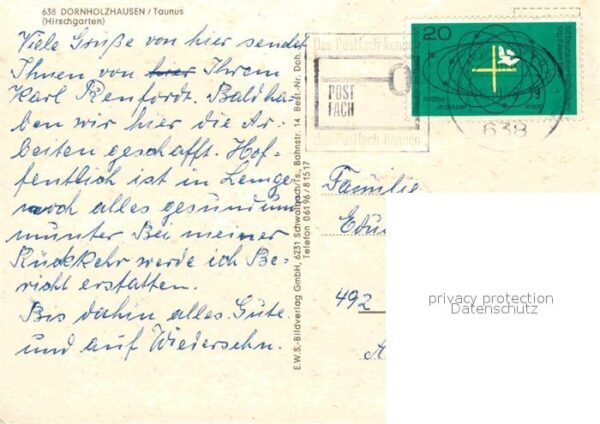 638 DORNHOLZHAUSEN / Taunus
(Hirschgarten)
Viele Grüße von hier sendet
Ihnen von hier Ihrem
Karl Renfordt. Bald ha-
ben wir hier die Ar-
beiten geschafft. Hof-
fentlich ist in Lemgo
noch alles gesund und
munter Bei meiner
Rückkehr werde ich Be-
richt erstatten.
Bis dahin alles Gute
und auf Wiedersehn.
E.W.S.-Bildverlag GmbH, 6231 Schwalbach/Ts., Bahnstr. 14 Best.-Nr. Doh.
Telefon 06196/81517
Das Postfach kennen
POST
FACH
das Postfach nennen
20
mitten
in dieser Welt
638
Familie
Edu
492
privacy protection
Datenschutz